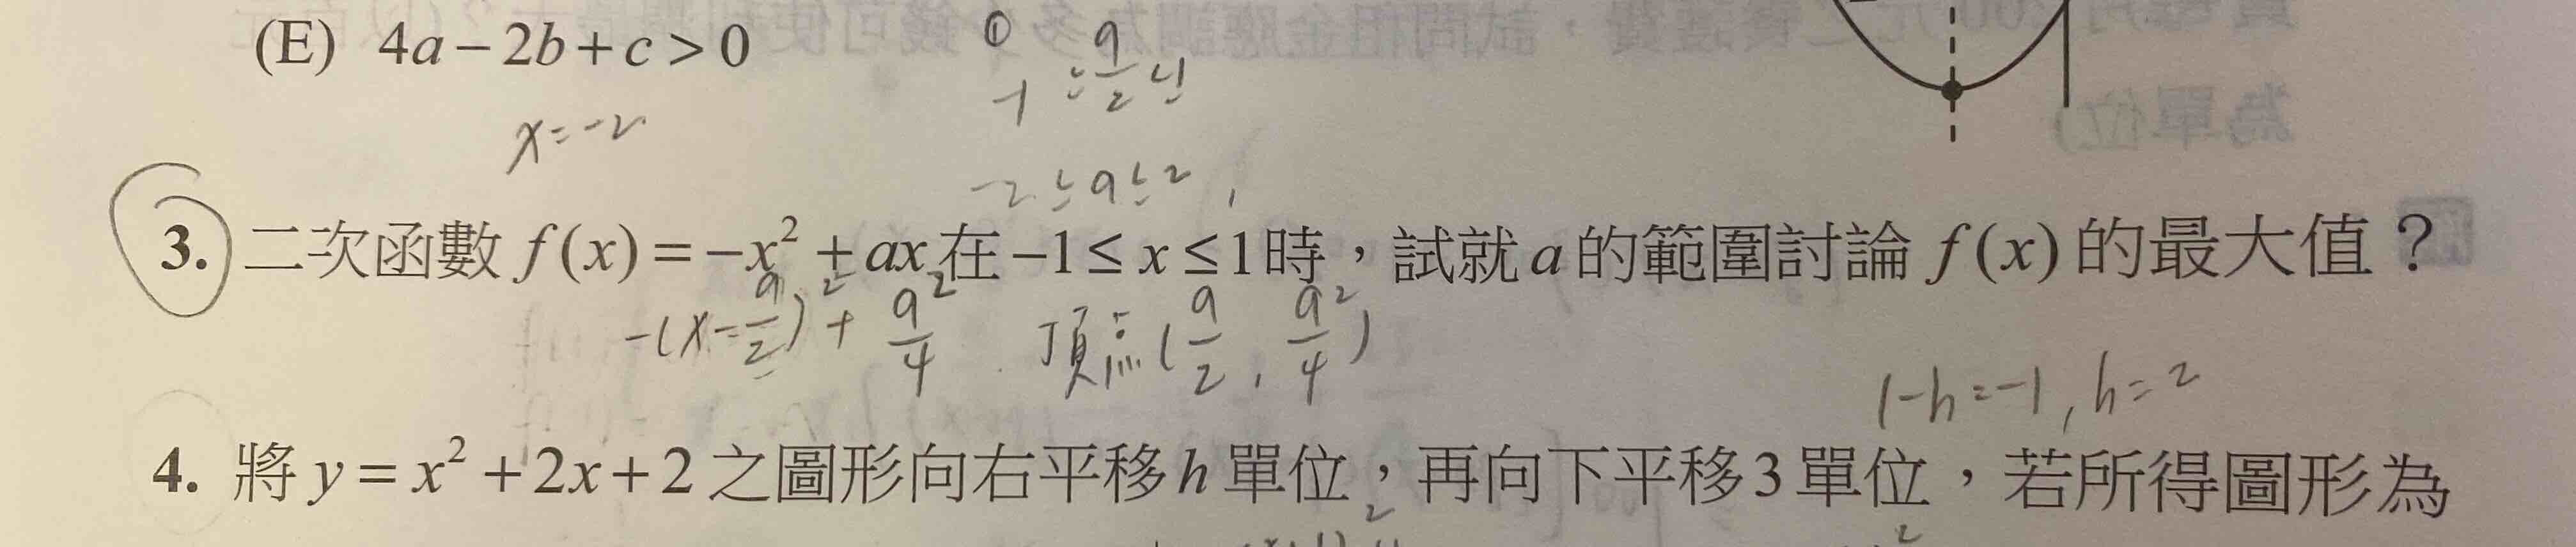 (E) 4a − 2b + c > 0
x = -2
①
-1 ≤ a/2 ≤ 1
-2 ≤ a ≤ 2,
3. 二次函數 f(x) = −x² + ax 在 −1 ≤ x ≤ 1 時，試就 a 的範圍討論 f(x) 的最大值？
-(x - a/2)² + a²/4 頂点(a/2, a²/4)
1-h=-1, h=2
4. 將 y = x² + 2x + 2 之圖形向右平移 h 單位，再向下平移 3 單位，若所得圖形為